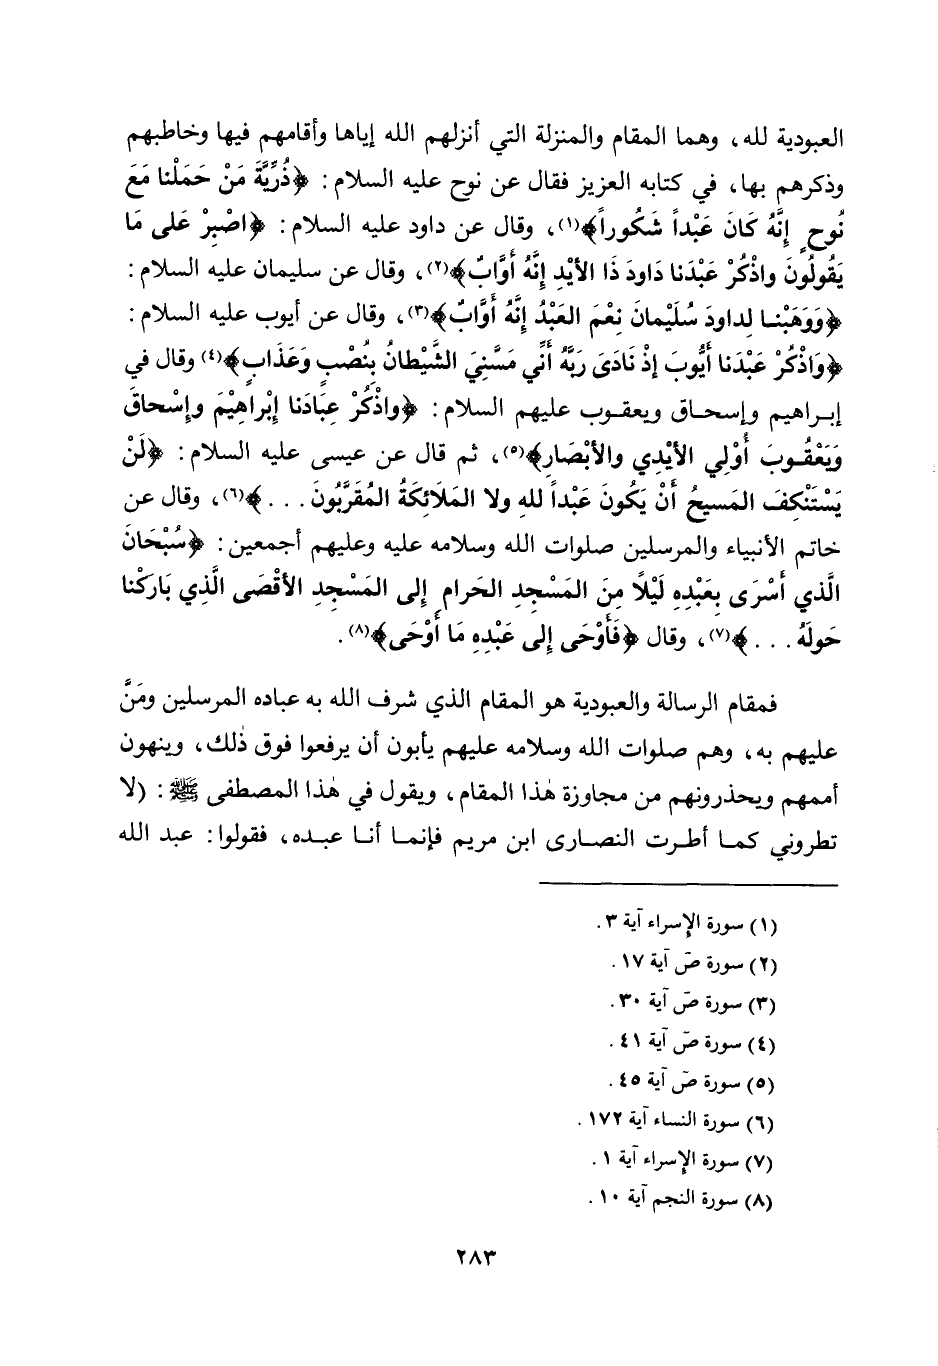 العبودية لله، وهما المقام والمنزلة التي أنزلهم الله إياها وأقامهم فيها وخاطبهم
وذكرهم بها، في كتابه العزيز فقال عن نوح عليه السلام: ﴿ذُرِّيَّةَ مَنْ حَمَلْنا مَعَ
نُوحٍ إِنَّهُ كَانَ عَبْداً شَكُوراً﴾(١)، وقال عن داود عليه السلام: ﴿اصْبِرْ عَلى مَا
يَقُولُونَ واذْكُرْ عَبْدَنا دَاودَ ذَا الأيْدِ إِنَّهُ أَوَّابٌ﴾(٢)، وقال عن سليمان عليه السلام:
﴿وَوَهَبْنا لِداودَ سُلَيْمانَ نِعْمَ العَبْدُ إِنَّهُ أَوَّابٌ﴾(٣)، وقال عن أيوب عليه السلام:
﴿وَاذْكُرْ عَبْدَنا أَيُّوبَ إذْ نَادَىَ رَبَّهُ أَنِّي مَسَّنِيَ الشَّيْطانُ بِنُصْبٍ وَعَذَابٍ﴾(٤) وقال في
إبراهيم وإسحاق ويعقوب عليهم السلام: ﴿واذْكُرْ عِبَادَنا إِبْراهِيْمَ وإِسْحاقَ
وَيَعْقُوبَ أُوْلِي الأيْدِي والأبْصَارِ﴾(٥)، ثم قال عن عيسى عليه السلام: ﴿لَنْ
يَسْتَنْكِفَ المَسيحُ أَنْ يَكُونَ عَبْداً للهِ ولا المَلَائِكَةُ المُقَرَّبُونَ...﴾(٦)، وقال عن
خاتم الأنبياء والمرسلين صلوات الله وسلامه عليه وعليهم أجمعين: ﴿سُبْحَانَ
الَّذي أَسْرَى بِعَبْدِهِ لَيْلًا مِنَ المَسْجِدِ الحَرامِ إِلى المَسْجِدِ الأقْصَى الَّذِي بَارَكْنا
حَولَهُ...﴾(٧)، وقال ﴿فَأوْحَى إِلى عَبْدِهِ مَا أَوْحَى﴾(٨).
فمقام الرسالة والعبودية هو المقام الذي شرف الله به عباده المرسلين ومَنَّ
عليهم به، وهم صلوات الله وسلامه عليهم يأبون أن يرفعوا فوق ذٰلك، وينهون
أممهم ويحذرونهم من مجاوزة هٰذا المقام، ويقول في هٰذا المصطفى ﷺ: (لا
تطروني كما أطرت النصارى ابن مريم فإنما أنا عبده، فقولوا: عبد الله
(١) سورة الإسراء آية ٣.
(٢) سورة صۤ آية ١٧.
(٣) سورة صۤ آية ٣٠.
(٤) سورة صۤ آية ٤١.
(٥) سورة صۤ آية ٤٥.
(٦) سورة النساء آية ١٧٢.
(٧) سورة الإسراء آية ١.
(٨) سورة النجم آية ١٠.
٢٨٣